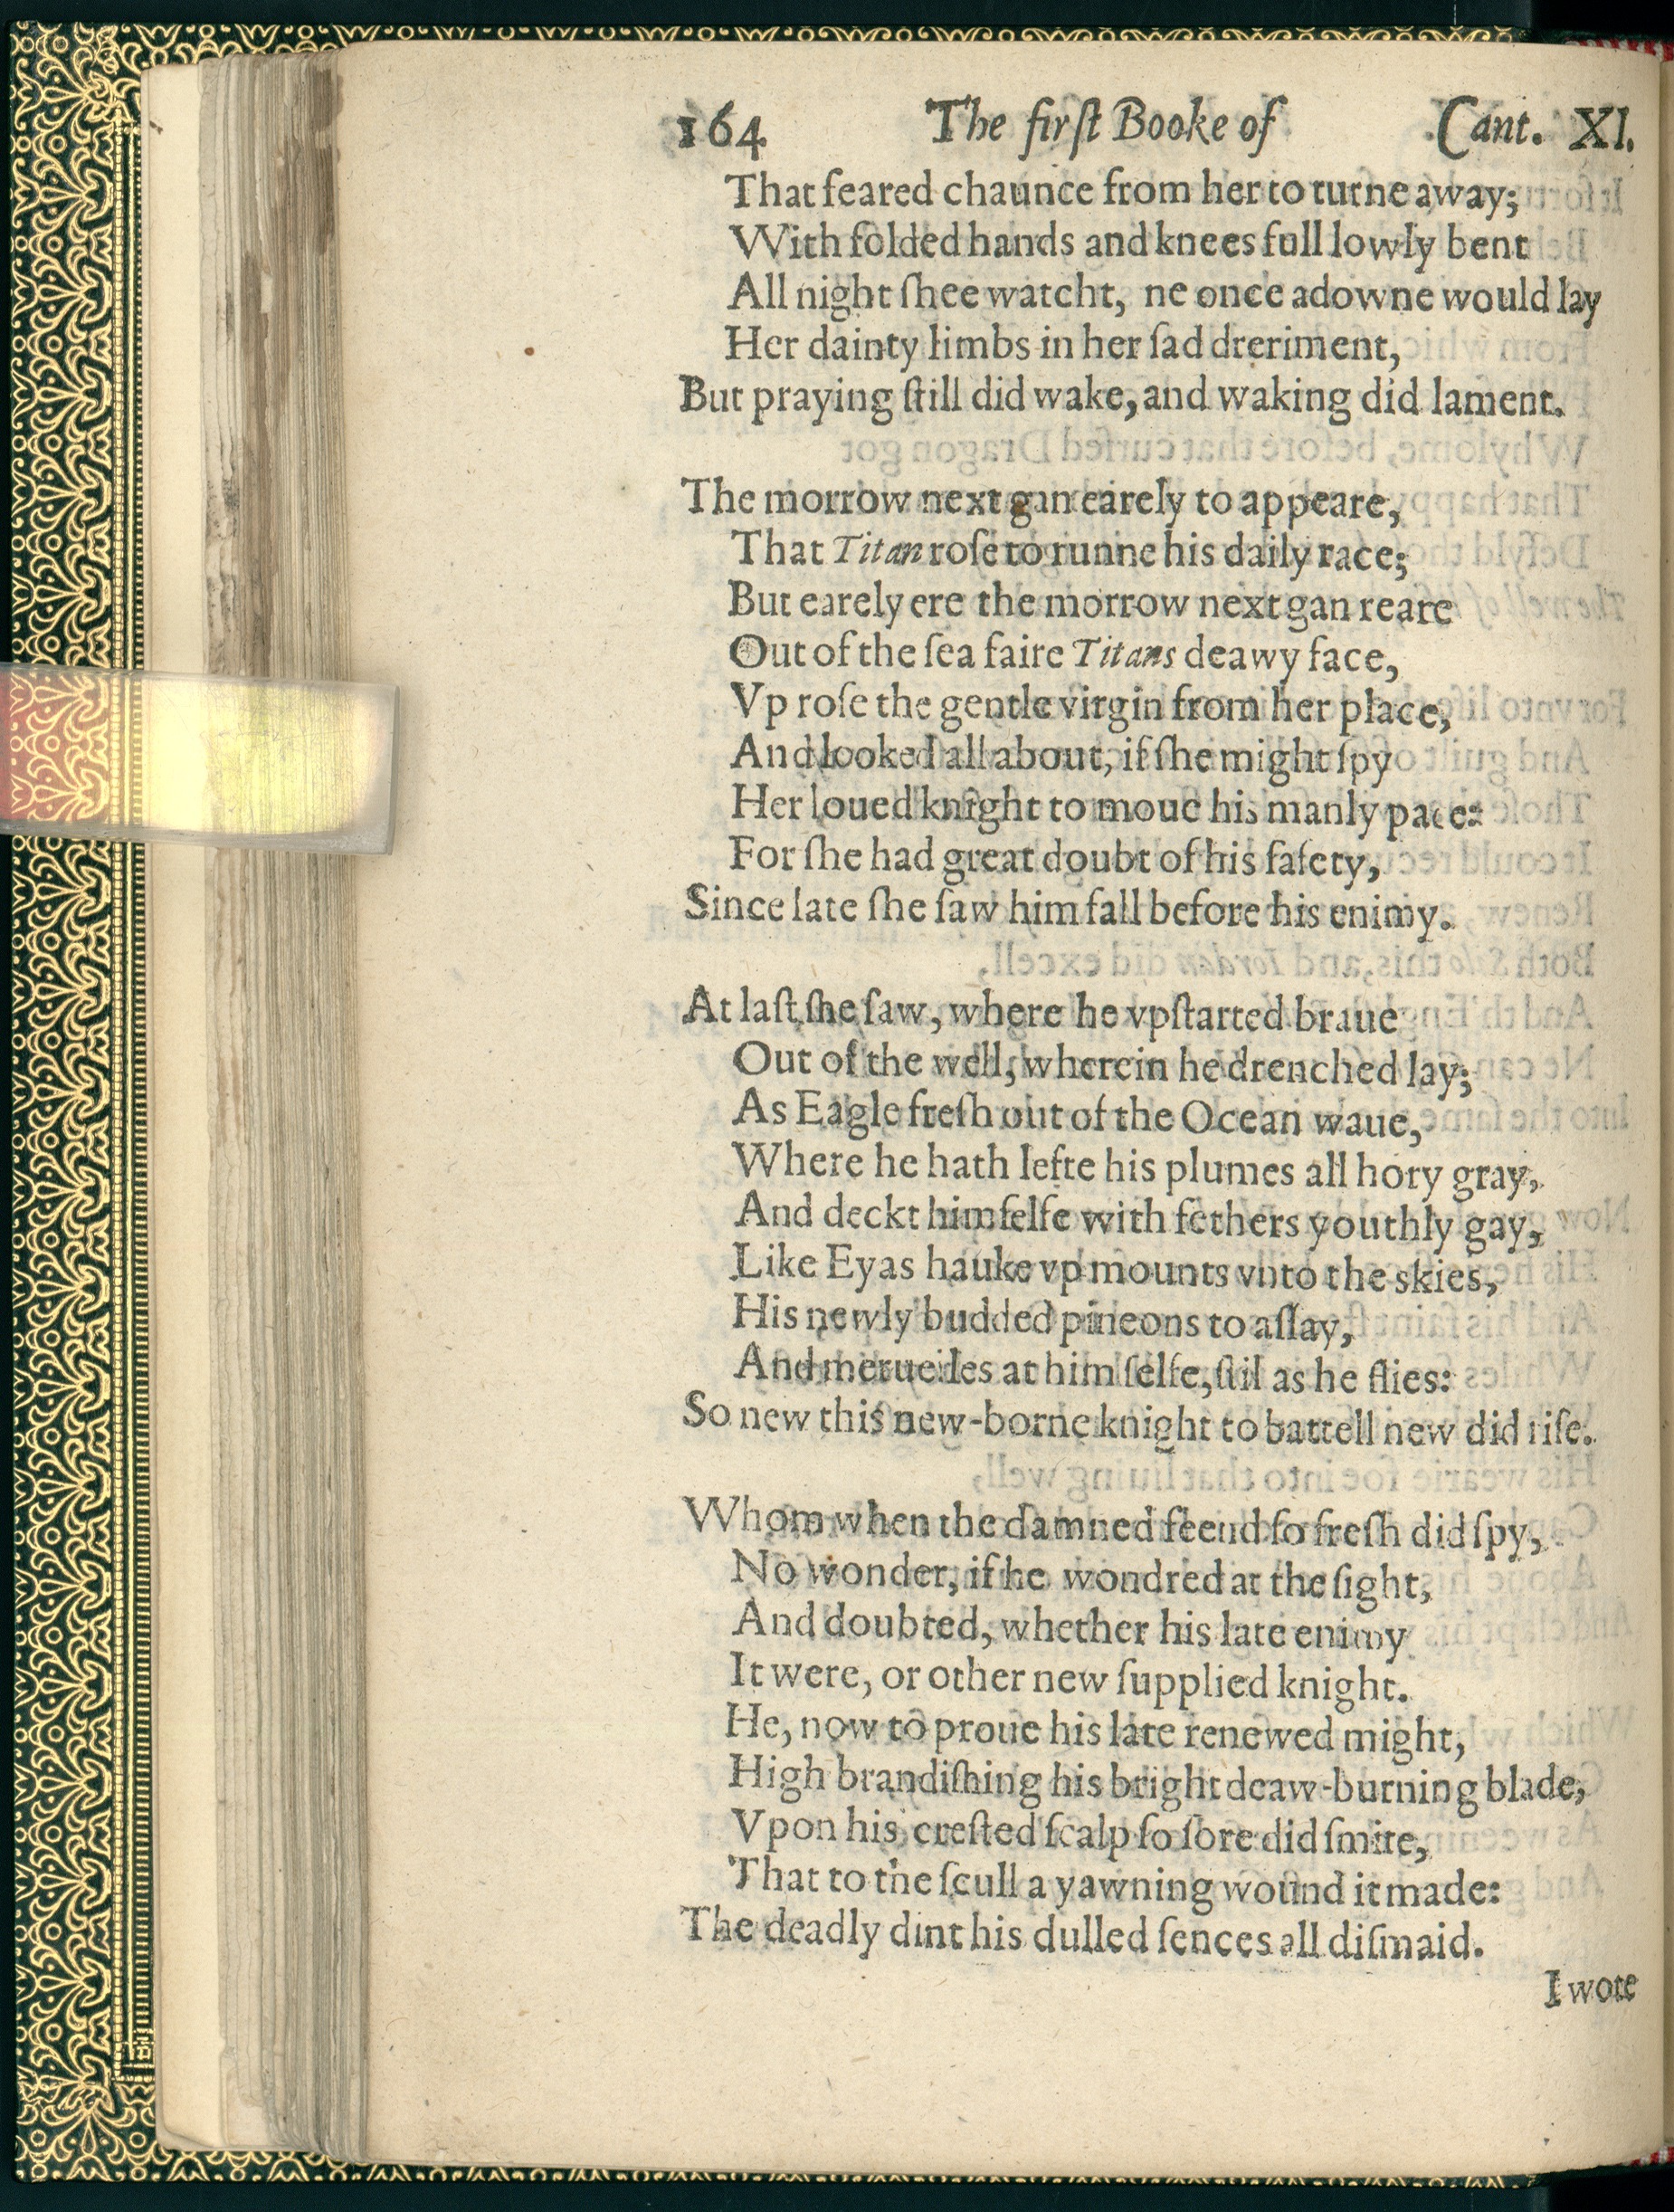 164 The firſt Booke of Cant. XI.
That feared chaunce from her to turne away;
With folded hands and knees full lowly bent
All night ſhee watcht, ne once adowne would lay
Her dainty limbs in her ſad dreriment,
But praying ſtill did wake, and waking did lament.
The morrow next gan earely to appeare,
That Titan roſe to runne his daily race;
But earely ere the morrow next gan reare
Out of the ſea faire Titans deawy face,
Vp roſe the gentle virgin from her place,
And looked all about, if ſhe might ſpy
Her loued knight to moue his manly pace:
For ſhe had great doubt of his ſafety,
Since late ſhe ſaw him fall before his enimy.
At laſt ſhe ſaw, where he vpſtarted braue
Out of the well, wherein he drenched lay;
As Eagle freſh out of the Ocean waue,
Where he hath lefte his plumes all hory gray,
And deckt himſelfe with fethers youthly gay,
Like Eyas hauke vp mounts vnto the skies,
His newly budded pineons to aſſay,
And merueiles at himſelfe, ſtil as he flies:
So new this new-borne knight to battell new did riſe.
Whom when the damned feend ſo freſh did ſpy,
No wonder, if he wondred at the ſight,
And doubted, whether his late enimy
It were, or other new ſupplied knight.
He, now to proue his late renewed might,
High brandiſhing his bright deaw-burning blade,
Vpon his creſted ſcalp ſo ſore did ſmite,
That to the ſcull a yawning wound it made:
The deadly dint his dulled ſences all diſmaid.
I wote